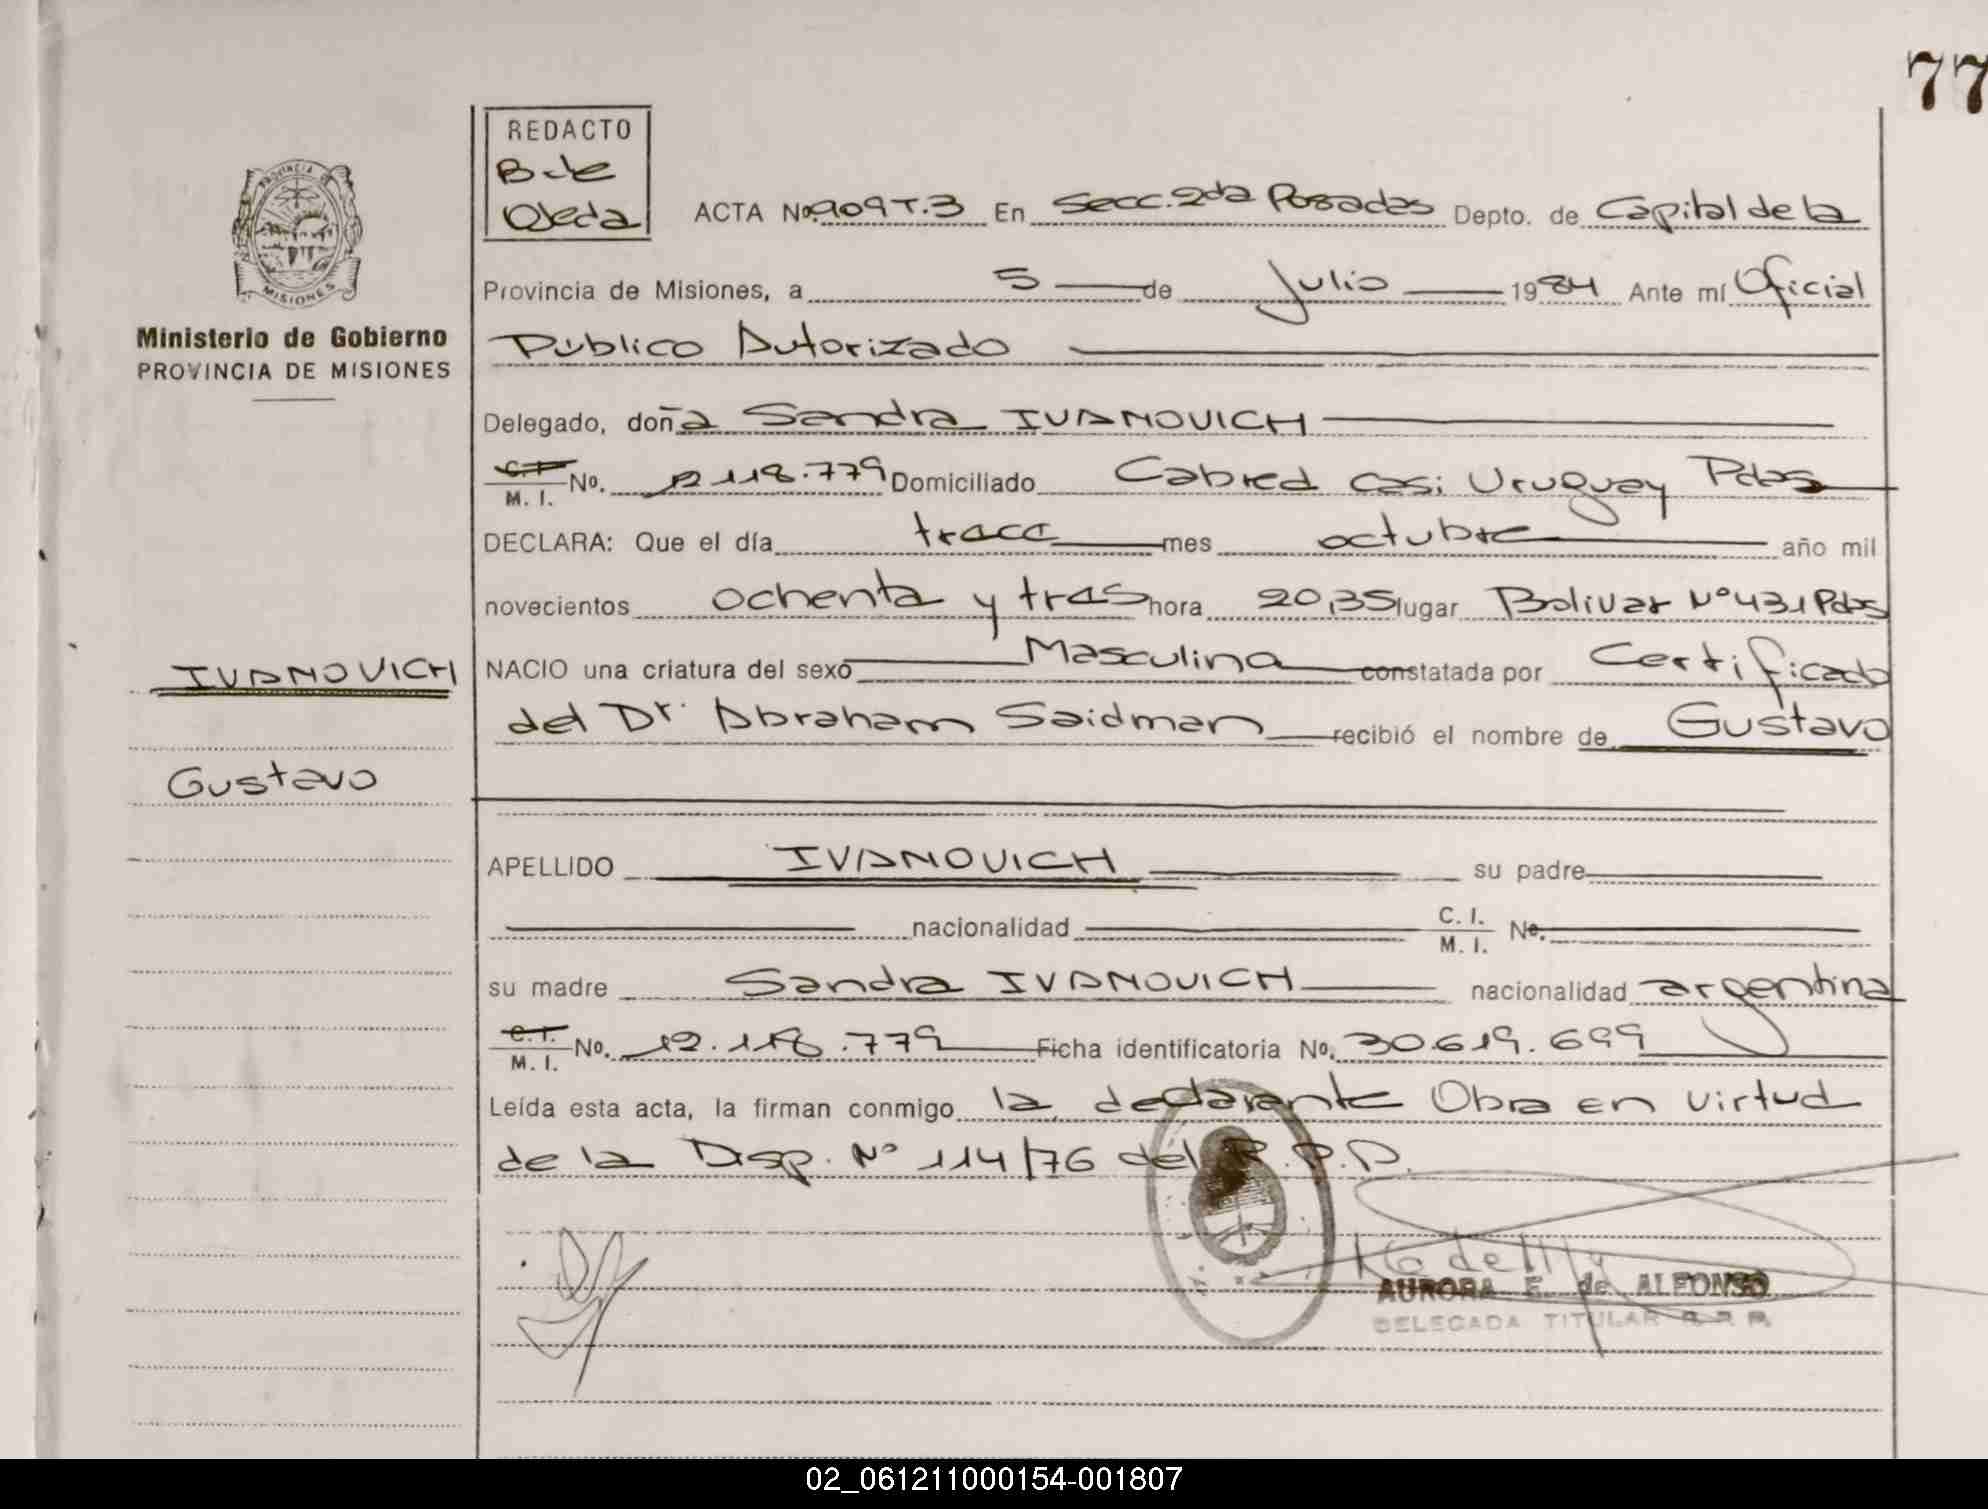 77
REDACTO
B. de
Ojeda
ACTA No. 909 T.3 En Secc. 2da Posadas Depto. de Capital de la
PROVINCIA DE
MISIONES
Provincia de Misiones, a 5 de Julio 1984 Ante mí Oficial
Ministerio de Gobierno
PROVINCIA DE MISIONES
Público Autorizado
Delegado, doña Sandra IVANOVICH
C. I. M. I. No. 12.118.779 Domiciliado Cabred casi Uruguay Pdas
DECLARA: Que el día trece mes octubre año mil
novecientos ochenta y tres hora 20,35 lugar Bolivar Nº 431 Pdas
IVANOVICH
NACIO una criatura del sexo Masculina constatada por Certificado
del Dr. Abraham Saidman recibió el nombre de Gustavo
Gustavo
APELLIDO IVANOVICH su padre
nacionalidad C. I. M. I. No.
su madre Sandra IVANOVICH nacionalidad argentina
C. I. M. I. No. 12.118.779 Ficha identificatoria No. 30.619.699
Leída esta acta, la firman conmigo la declarante Obra en virtud
de la Disp. Nº 114/76 del R.P.P.
AURORA E. de ALFONSO
DELEGADA TITULAR R. P. P.
02_061211000154-001807